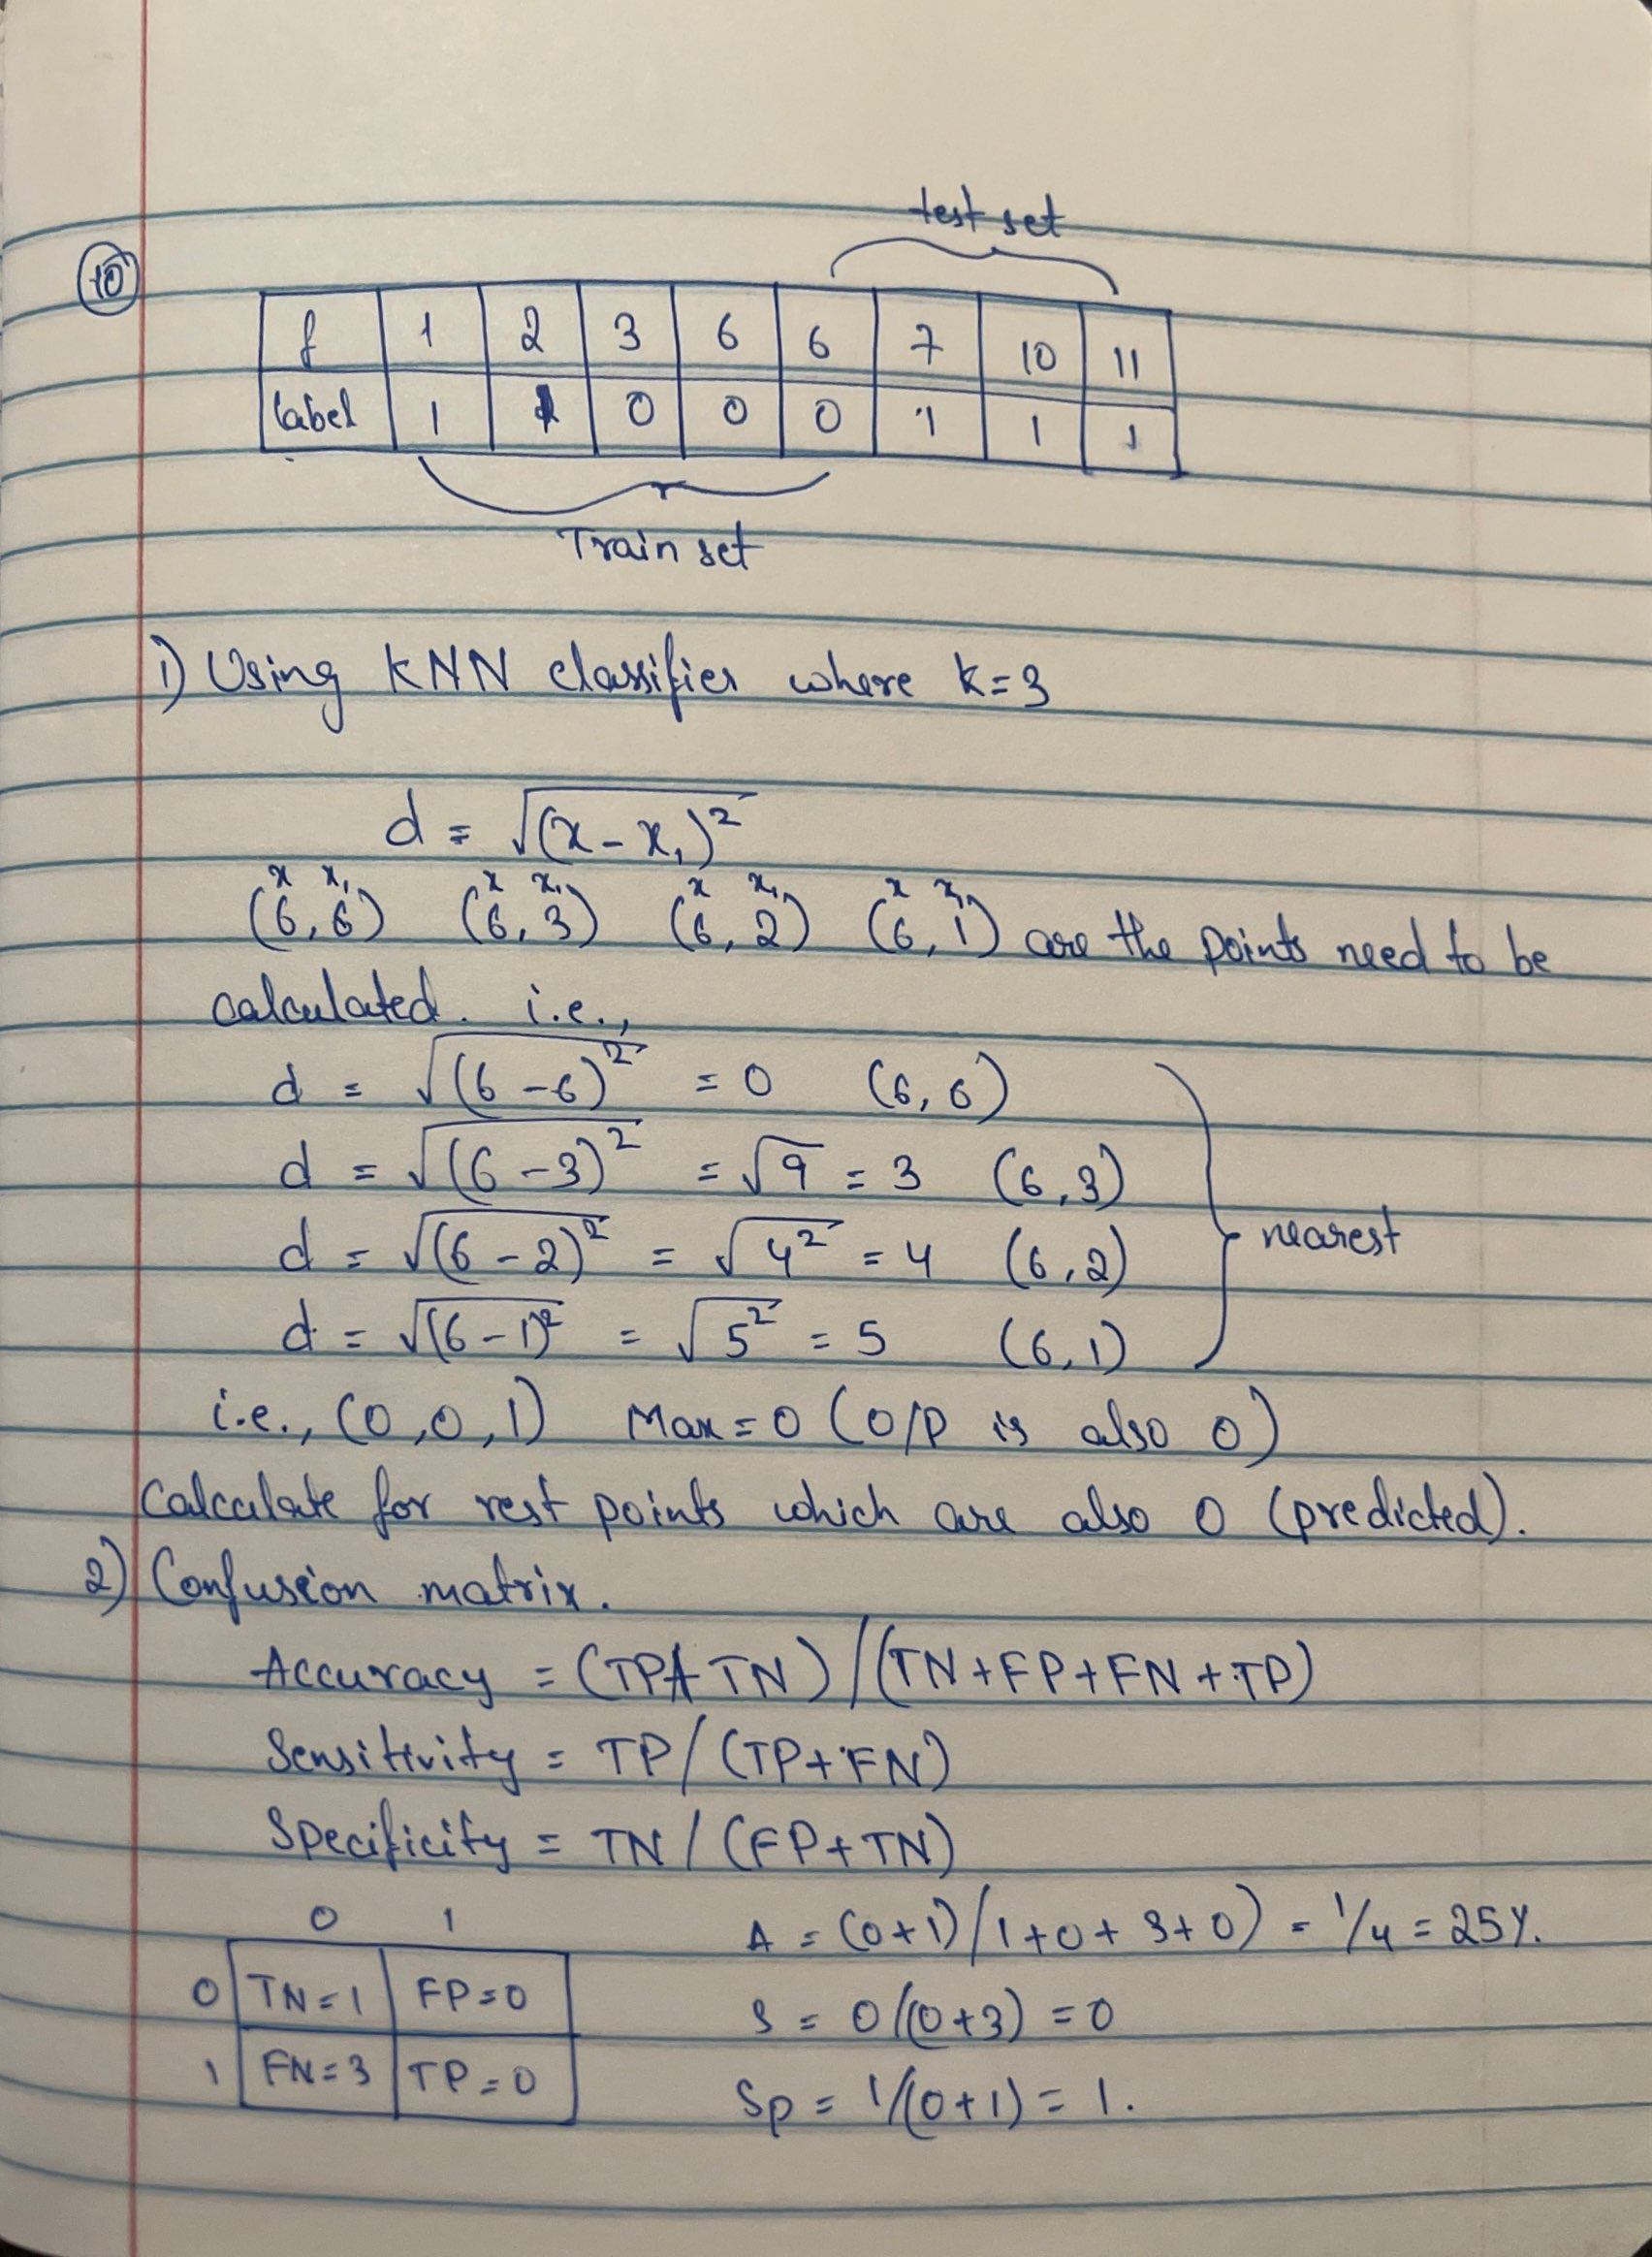 test set
10
f 1 2 3 6 6 7 10 11
label 1 1 0 0 0 1 1 1
Train set
1) Using KNN classifier where k=3
d = √(x - x₁)²
x x₁ x x₁ x x₁ x x₁
(6, 6) (6, 3) (6, 2) (6, 1) are the points need to be
calculated. i.e.,
d = √(6-6)² = 0 (6, 6)
d = √(6-3)² = √9 = 3 (6, 3)
d = √(6-2)² = √4² = 4 (6, 2) nearest
d = √(6-1)² = √5² = 5 (6, 1)
i.e., (0,0,1) Max = 0 (O/P is also 0)
Calculate for rest points which are also 0 (predicted).
2) Confusion matrix.
Accuracy = (TP+TN)/(TN+FP+FN+TP)
Sensitivity = TP/(TP+FN)
Specificity = TN/(FP+TN)
0 1 A = (0+1)/1+0+3+0) = 1/4 = 25%.
0 TN=1 FP=0 S = 0/(0+3) = 0
1 FN=3 TP=0 Sp = 1/(0+1) = 1.